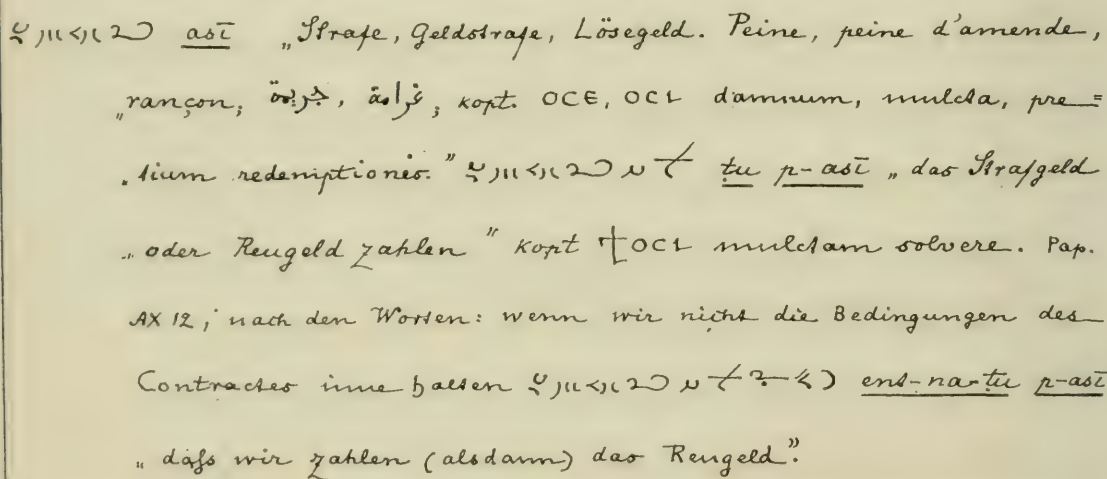 asī „Strafe, Geldstrafe, Lösegeld. Peine, peine d'amende,
„rançon, غرامة, جريمة, kopt. ⲟⲥⲉ, ⲟⲥⲓ damnum, mulcta, pre=
„tium redemptionis.” ṭu p-asī „das Strafgeld
„oder Reugeld zahlen” kopt ϯⲟⲥⲓ mulctam solvere. Pap.
AX 12, nach den Worten: wenn wir nicht die Bedingungen des
Contractes inne halten ent-na-ṭu p-asī
„daſs wir zahlen (alsdann) das Reugeld”.